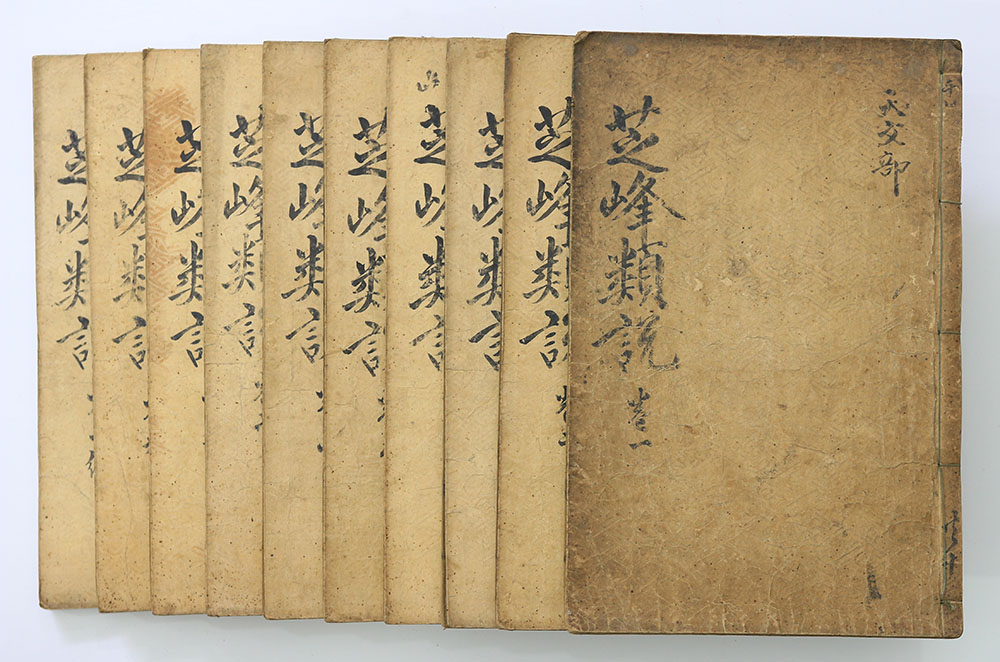 天文部
芝峰類說 卷一
芝峰類說 卷
芝峰類說
芝峰類說
芝峰類說
芝峰類說
芝峰類說
芝峰類說
芝峰類說
芝峰類說